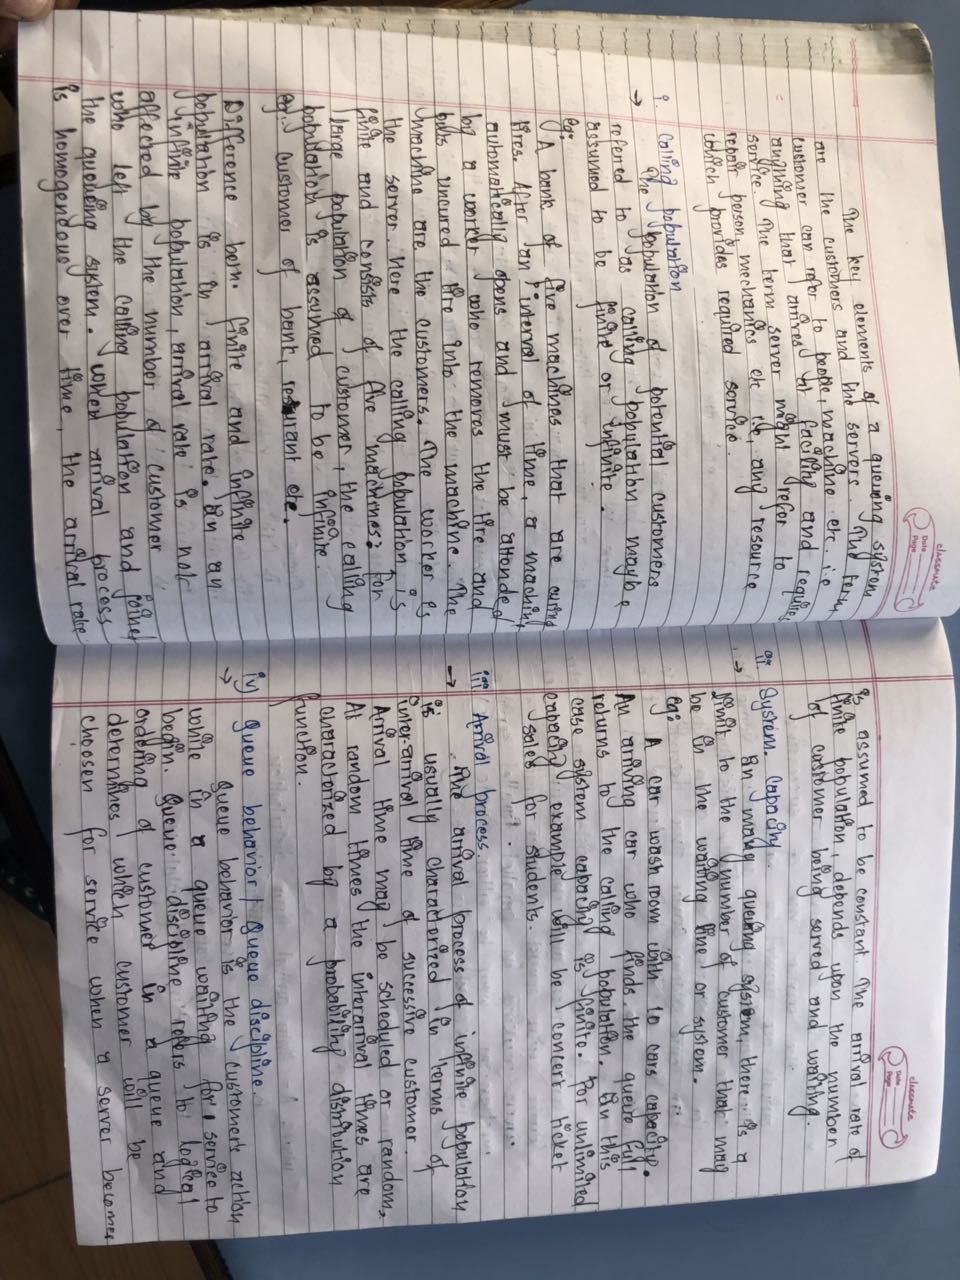 classmate
Date
Page
The key elements of a queuing system
are the customers and the servers. The term
customer can refer to people, machine etc. i.e
anything that arrives at facility and requires
service. The term server might refer to
repair person, mechanics etc i.e, any resource
which provides required service.
i. Calling population
→ The population of potential customers
referred to as calling population maybe
assumed to be finite or infinite.
eg:
A bank of five machines that are curing
tires. After an interval of time, a machine
automatically opens and must be attended
by a worker who removes the tire and
puts uncured tire into the machine. The
machine are the customers. The worker is
the server. Here the calling population is
finite and consists of five machines. For
large population of customer, the calling
population is assumed to be infinite.
eg:- customer of bank, restaurant etc.
Difference betn. finite and infinite
population is in arrival rate. In an
infinite population, arrival rate is not
affected by the number of customer
who left the calling population and joined
the queuing system. When arrival process
is homogenous over time, the arrival rate
classmate
Date
Page
is assumed to be constant. The arrival rate of
finite population, depends upon the number
of customer being served and waiting.
ii System capacity
→ In many queuing system, there is a
limit to the number of customer that may
be in the waiting line or system.
eg:
A car wash room with to cars capacity.
An arriving car who finds the queue full
returns to the calling population. In this
case system capacity is finite. For unlimited
capacity example will be concert ticket
sales for students.
iii Arrival process
→ The arrival process of infinite population
is usually characterized in terms of
inter-arrival time of successive customer.
Arrival time may be scheduled or random.
At random times the interarrival times are
characterized by a probability distribution
function.
iv) Queue behavior / queue discipline.
→ Queue behavior is the customers action
while in a queue waiting for service to
begin. Queue discipline refers to logical
ordering of customer in a queue and
determines which customer will be
chosen for service when a server becomes